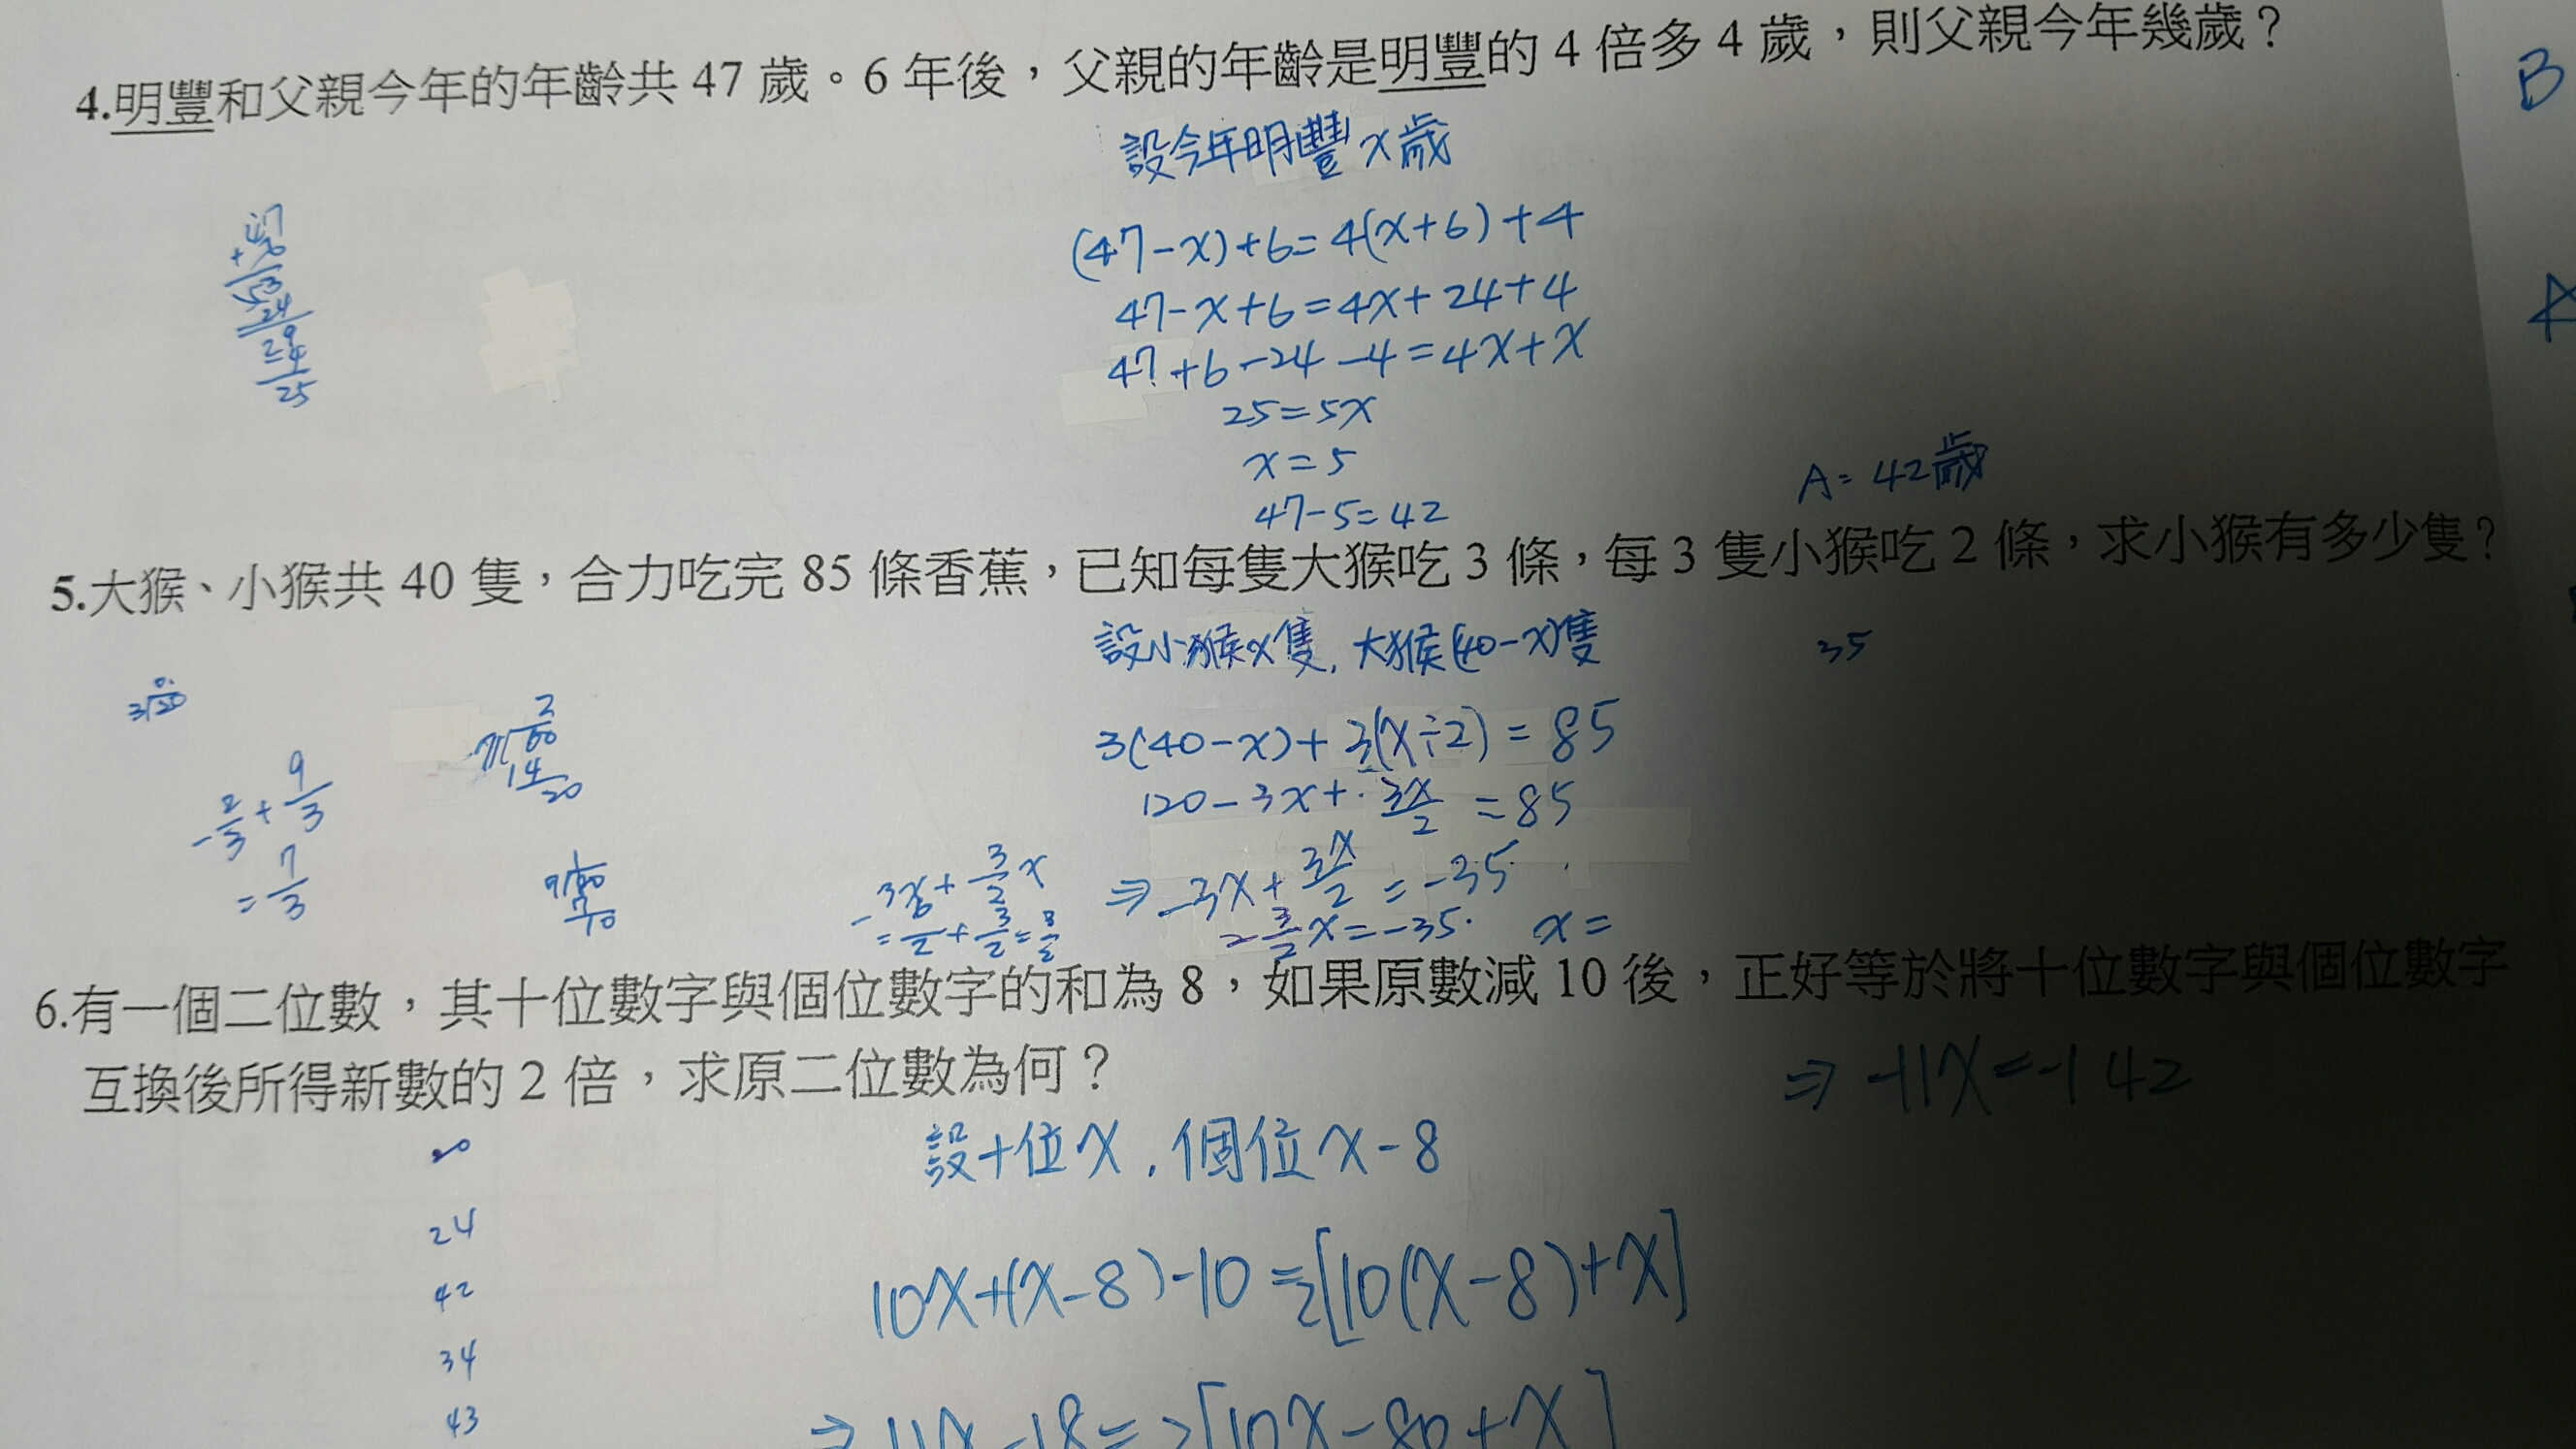 4.明豐和父親今年的年齡共 47 歲。6 年後，父親的年齡是明豐的 4 倍多 4 歲，則父親今年幾歲？
設今年明豐 x 歲
(47-x)+6=4(x+6)+4
47-x+6=4x+24+4
47+6-24-4=4x+x
25=5x
x=5
47-5=42
A=42歲
5.大猴、小猴共 40 隻，合力吃完 85 條香蕉，已知每隻大猴吃 3 條，每 3 隻小猴吃 2 條，求小猴有多少隻？
設小猴x隻，大猴(40-x)隻
35
3(40-x)+3(x÷2)=85
120-3x+3x/2=85
⇒-3x+3x/2=-35
-3/2x=-35
x=
-2/3+9/3
=7/3
6.有一個二位數，其十位數字與個位數字的和為 8，如果原數減 10 後，正好等於將十位數字與個位數字
互換後所得新數的 2 倍，求原二位數為何？
⇒ -11x=-142
設十位x，個位x-8
10x+(x-8)-10=2[10(x-8)+x]
⇒11x-18=2[10x-80+x]
20
24
42
34
43
B